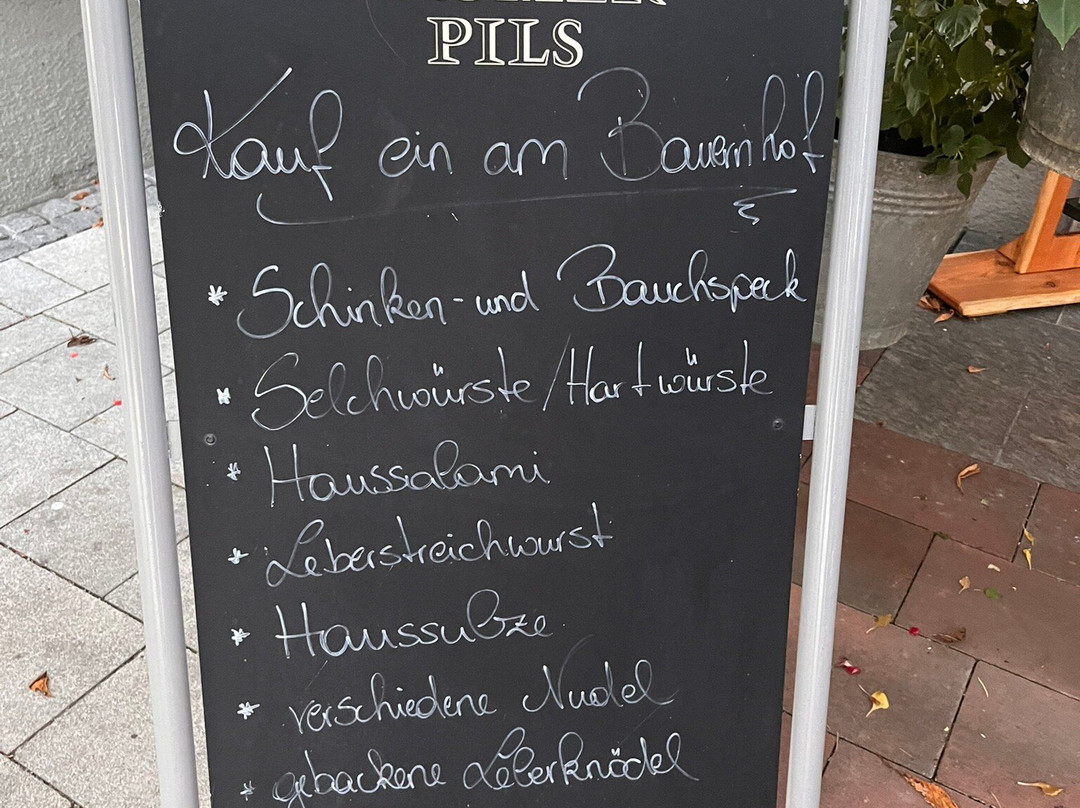 PILS
Kauf ein am Bauernhof
* Schinken- und Bauchspeck
* Selchwürste/Hartwürste
* Haussalami
* Leberstreichwurst
* Haussulze
* verschiedene Nudel
* gebackene Leberknödel